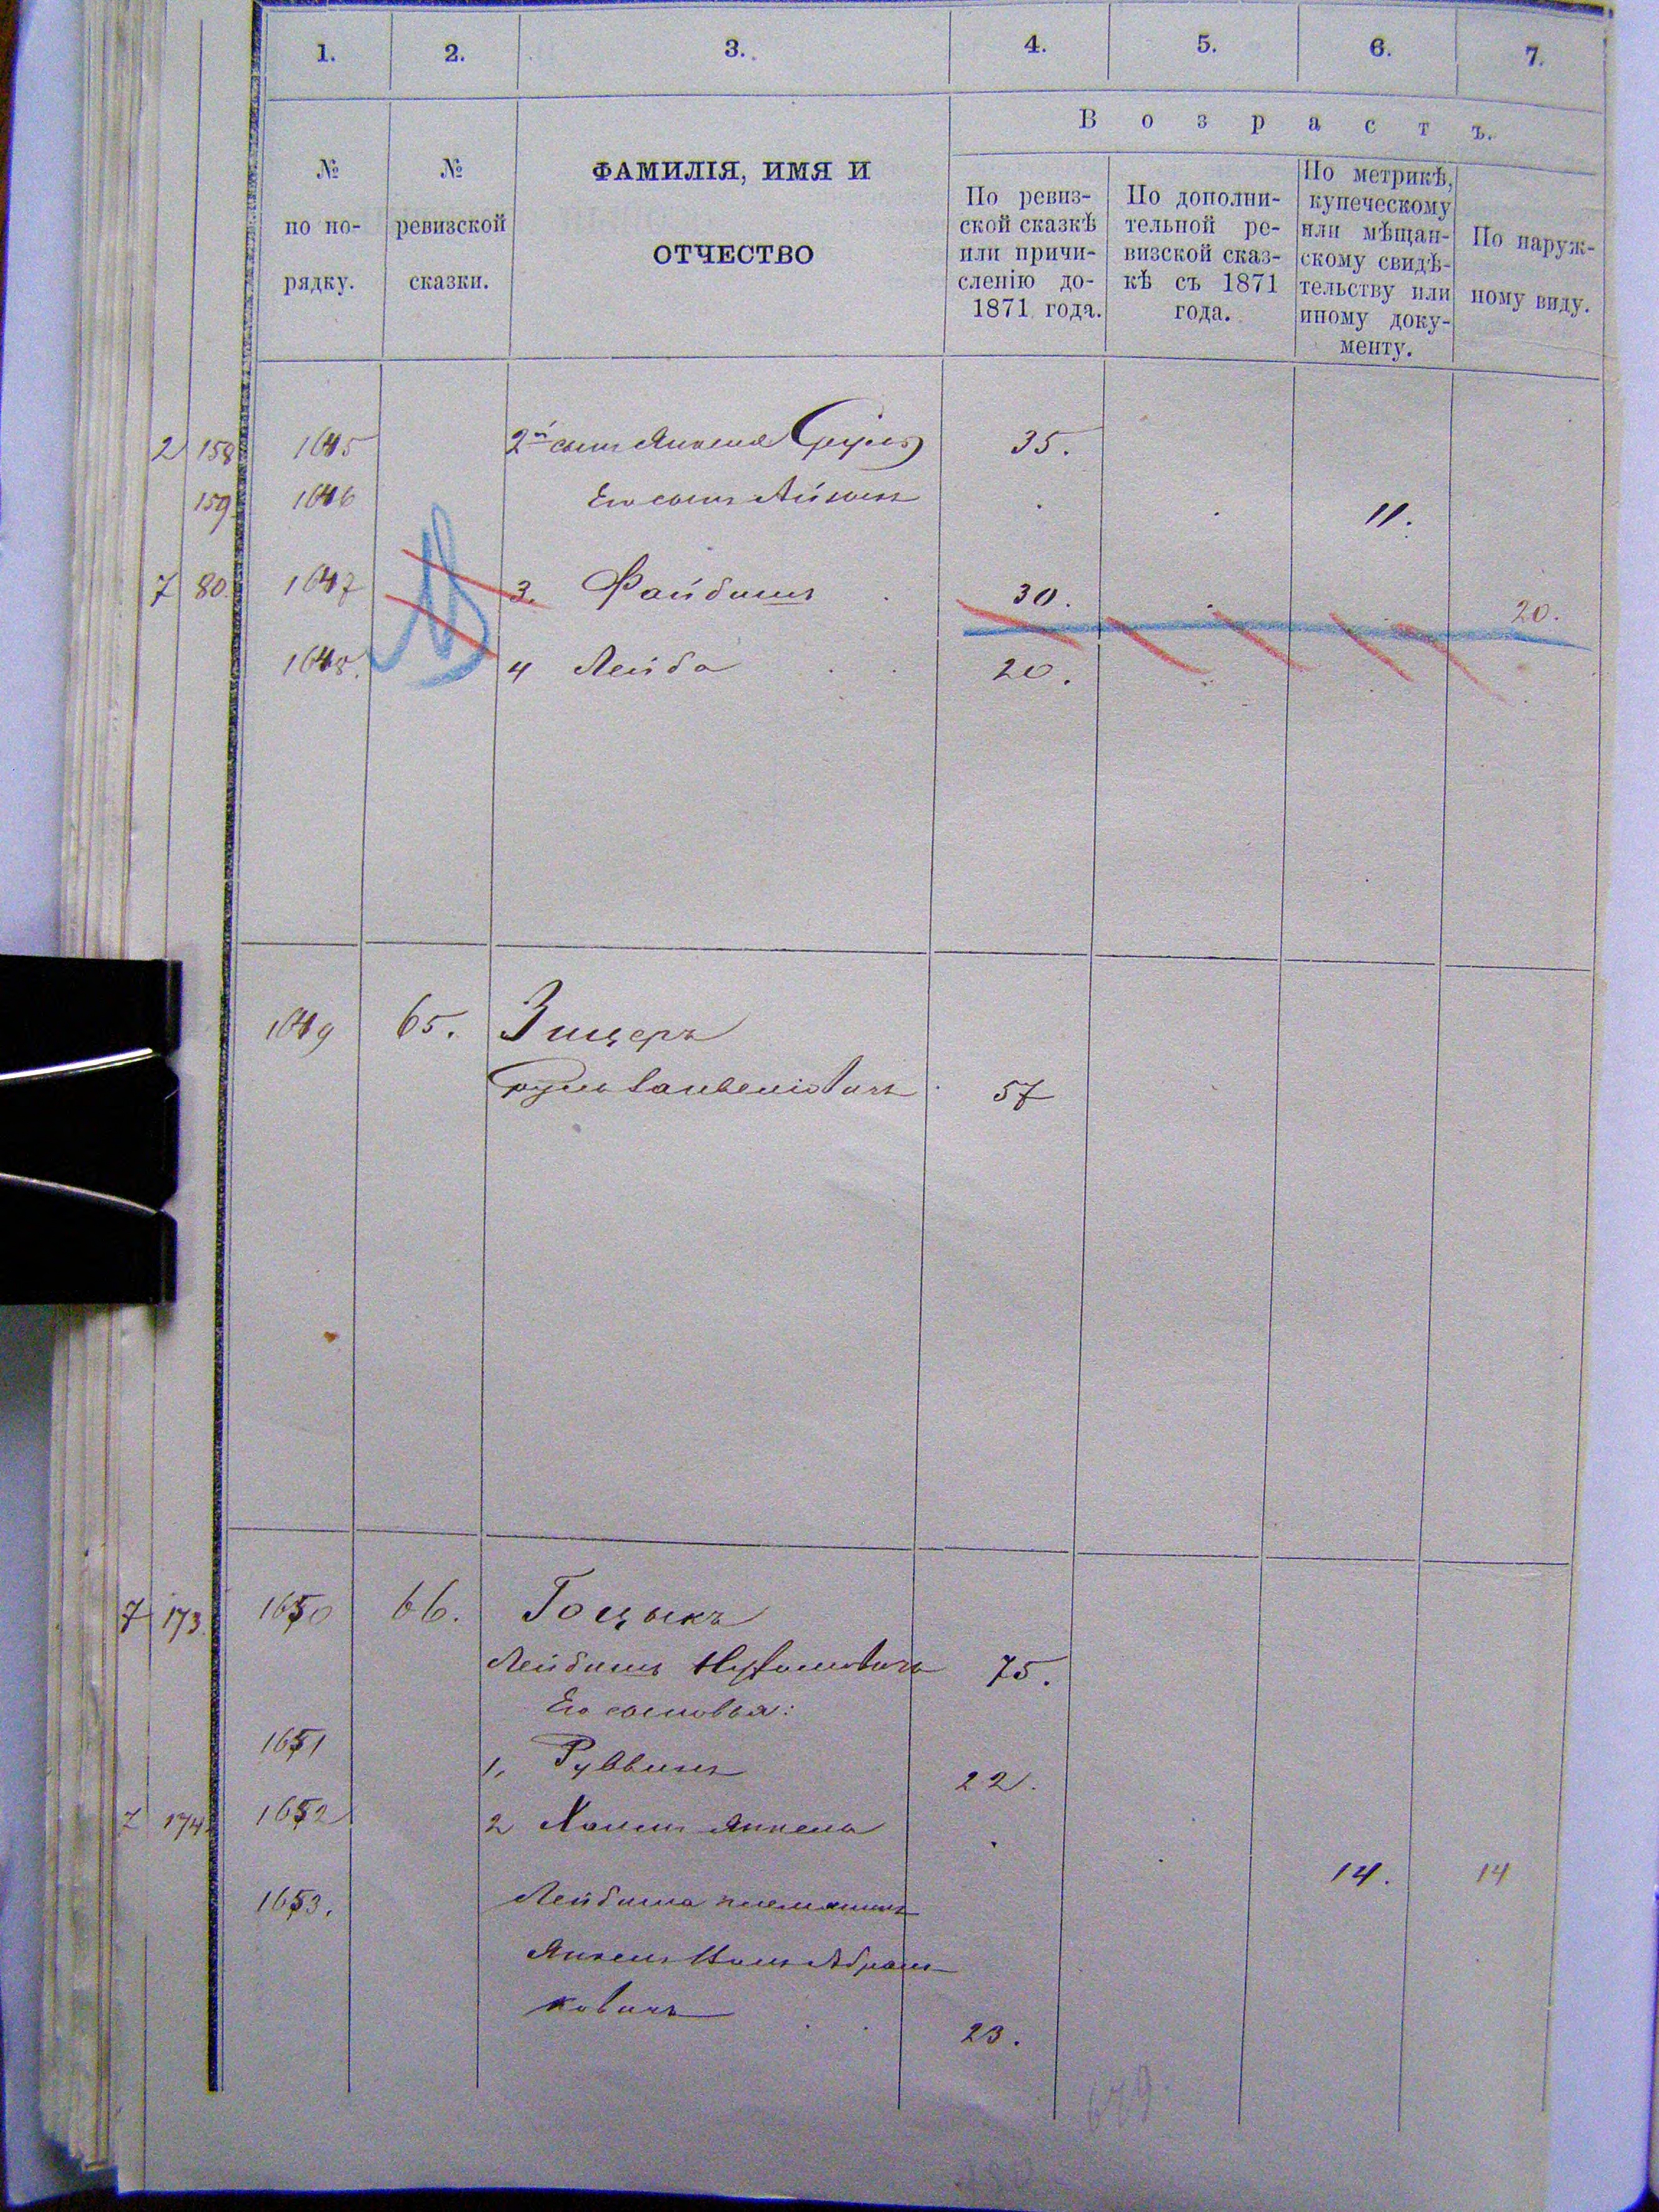 1. 2. 3. 4. 5. 6. 7.
В о з р а с т ъ.
№ по по-рядку.
№ ревизской сказки.
ФАМИЛІЯ, ИМЯ И
ОТЧЕСТВО
По ревиз-
ской сказкѣ
или причи-
сленію до-
1871 года.
По дополни-
тельной ре-
визской сказ-
кѣ съ 1871
года.
По метрикѣ,
купеческому
или мѣщан-
скому свидѣ-
тельству или
иному доку-
менту.
По наруж-
ному виду.
2 158 1645 2й сынъ Янкеля Сруль 35.
159 1646 Его сынъ 11.
7 80. 1647 3. Файбишъ 30. 20.
1648. 4 Лейба 20.
1649 65. Зицеръ
Сруль 57
7 173. 1650 66. Гоцыкъ
Лейбишъ 75.
Его сыновья:
1651 1, Руввинъ 22.
7 174. 1652 2 Хаимъ Янкель 14. 14
1653. Лейбиша племянникъ
Янкель Абрам-
ковичъ 23.
679.